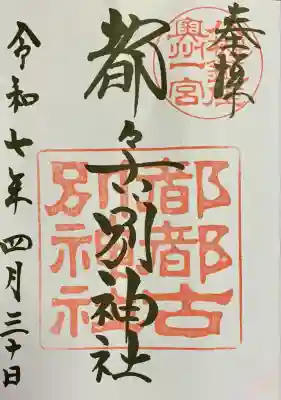 奉拝
奥州一宮
都々古別神社
都都古
別神社
令和七年四月三十日